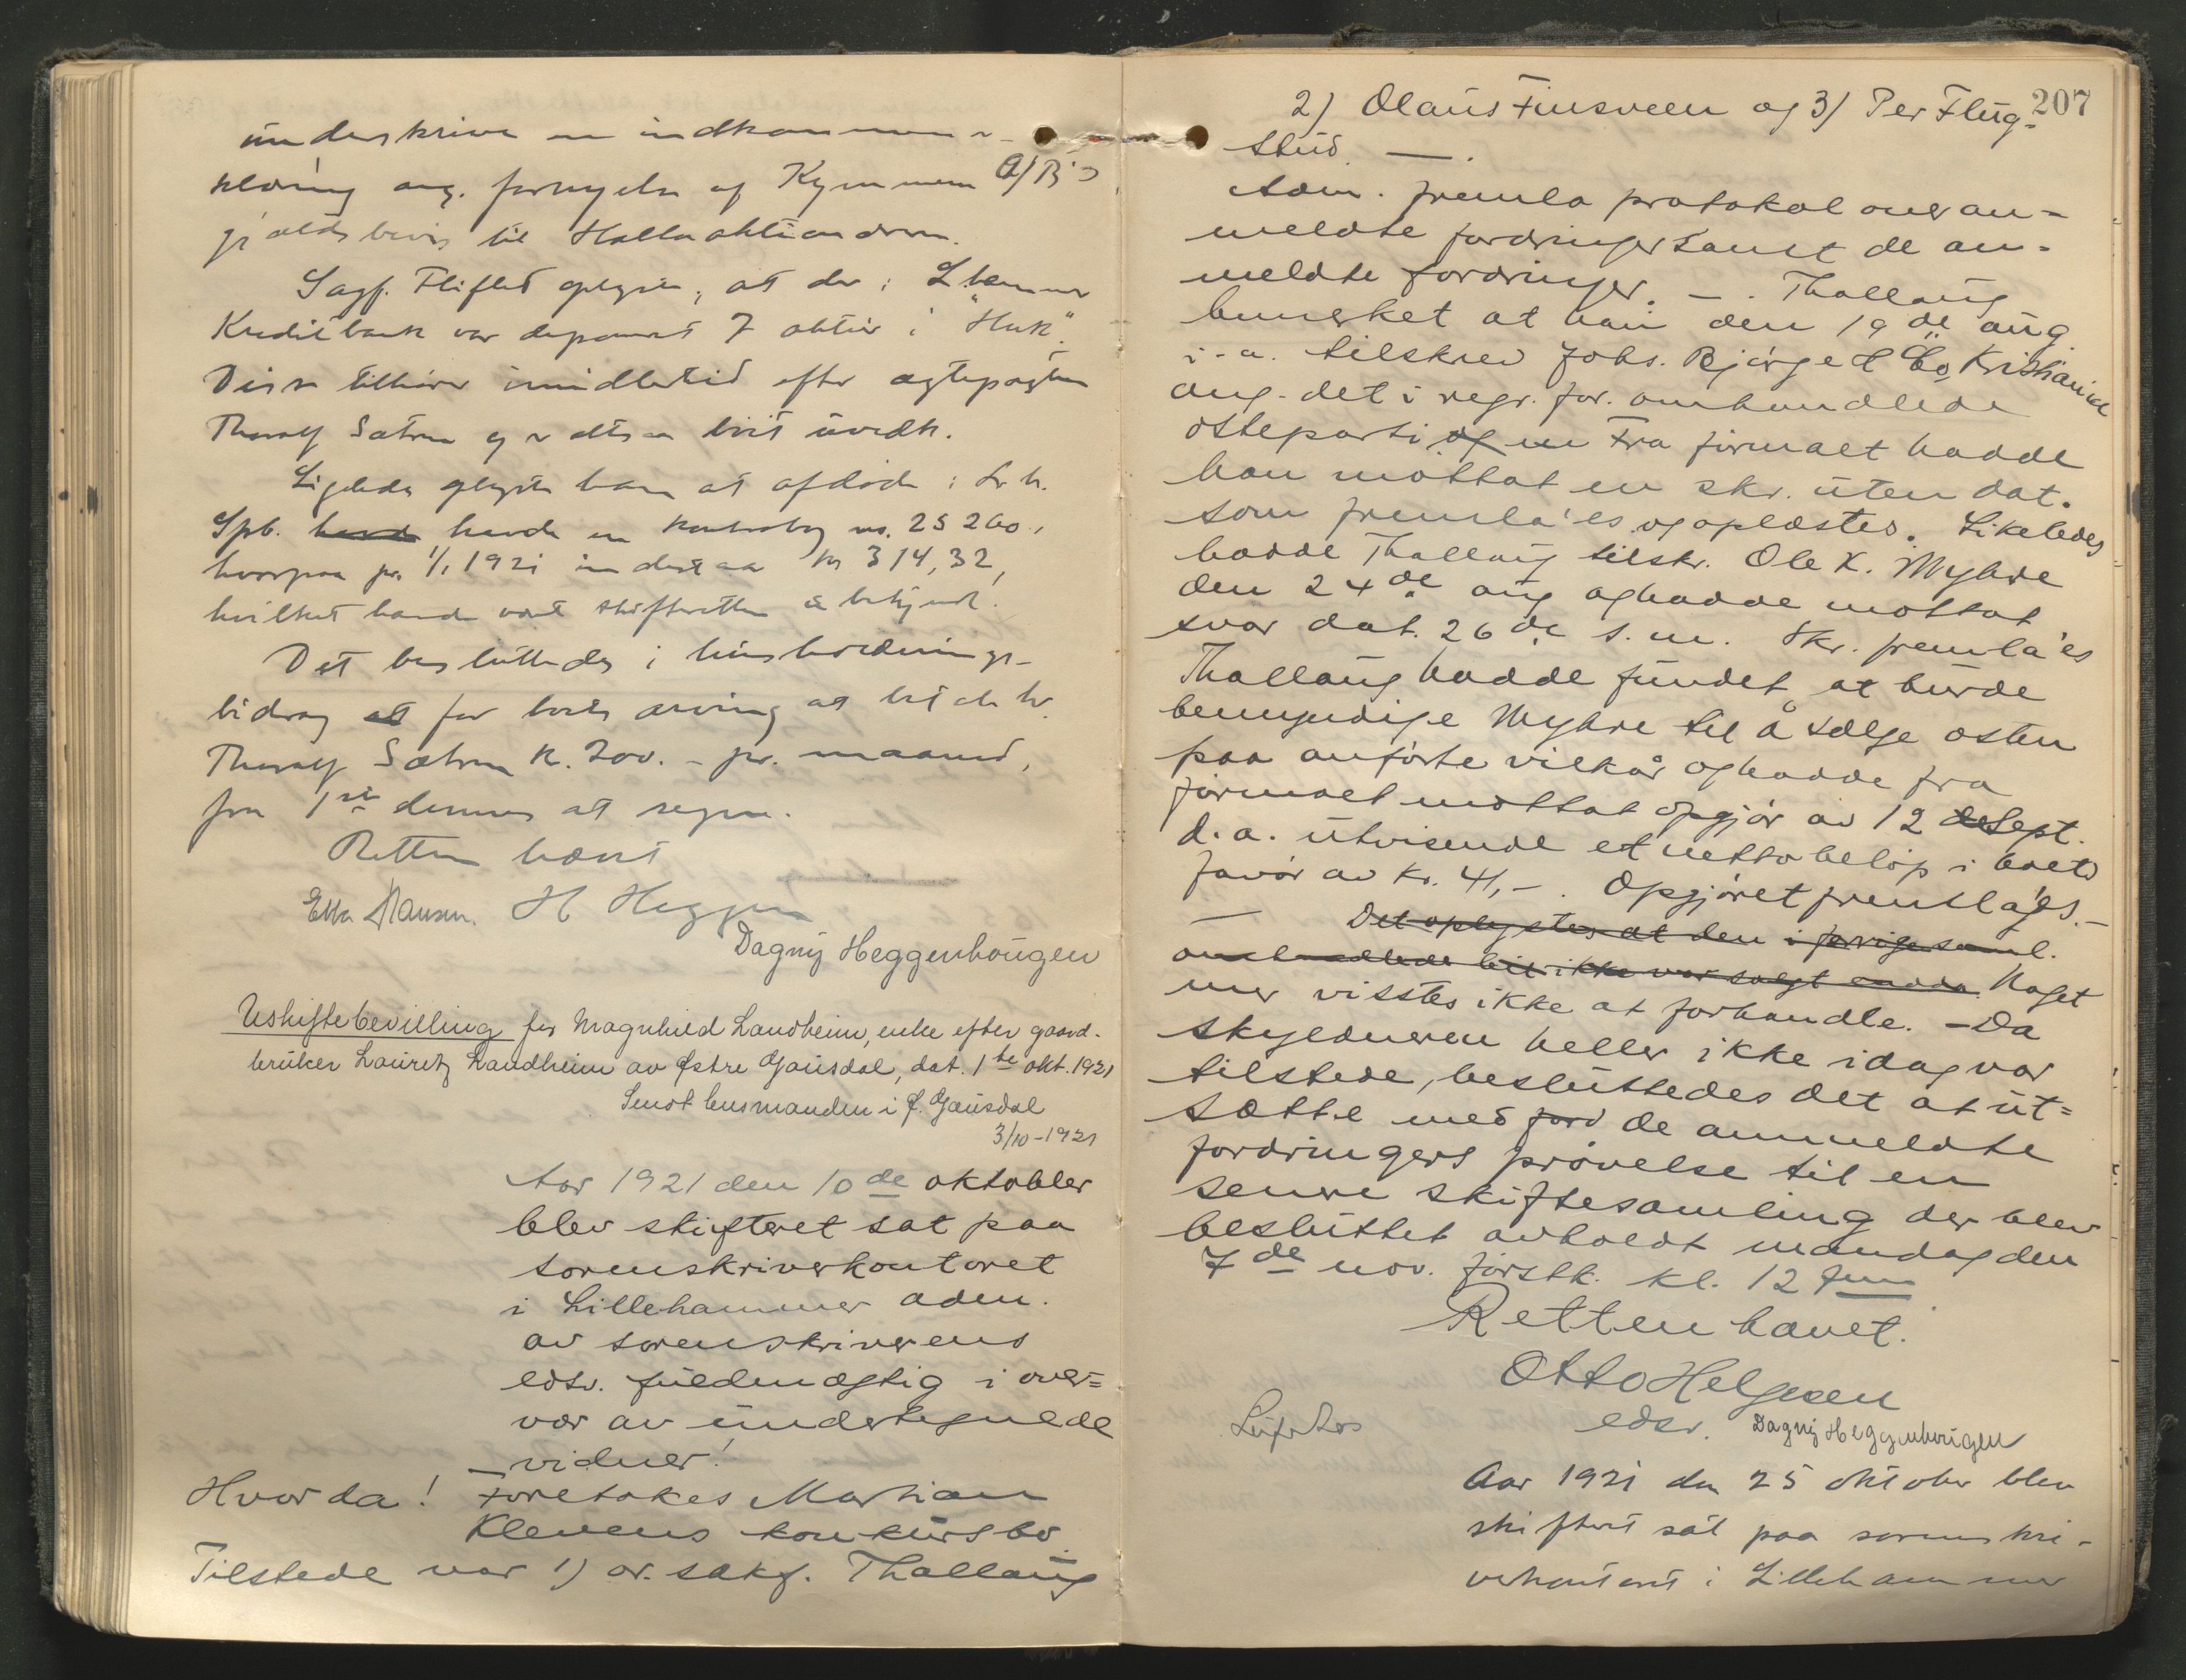 underskrive en indkommen er-
klæring ang. fornyelse af Kymmene A/B's
gjældsbevis til Hallaaktionærerne.
Sagf. Fliflet oplyste, at der i L.hammer
Kreditbank var deponert 7 aktier i "Huk".
Disse tilhører imidlertid efter ægtepagten
Thoralf Sætrum og er altsaa boet uvedk.
Ligeledes oplyste han at afdøde i Lr. hr.
Spb. havde havde en kontrabog no. 25260,
hvorpaa pr. 1/1 1921 indestaar kr 314,32,
hvilket havde vært skifteretten ubekjendt.
Det besluttedes i husholdnings-
bidrag at for boets arving at betale hr.
Thoralf Sætrum kr. 200.- pr. maaned,
fra 1ste dennes at regne.
Retten hævet
Ella Hansen. H Heggen
Dagny Heggenhougen
Uskiftebevilling for Magnhild Landheim, enke efter gaard-
bruker Lauritz Landheim av Østre Gausdal, dat. 1ste okt. 1921
Sendt lensmanden i Ø. Gausdal
3/10-1921
Aar 1921 den 10de oktobler
blev skifteret sat paa
sorenskriverkontoret
i Lillehammer adm.
av sorenskriverens
edsv. fuldmægtig i over=
vær av undertegnede
vidner!
Hvorda! Foretokes Marthian
Klevens konkursbo.
Tilstede var 1) or. sakf. Thallaug
207
2) Olaus Finsveen og 3) Per Flug=
stud. — .
Adm. fremla protokol over an=
meldte fordringer samt de an=
meldte fordringer. — . Thallaug
bemerket at han den 19de aug.
i.a. tilskrev Johs. Bjørge & Co, Kristiania
ang. det i regr. for. omhandlede
osteparti og en Fra firmaet hadde
han mottat en skr. uten dat.
som fremla'es og oplæstes. Likeledes
hadde Thallaug tilskr. Ole K. Myhre
den 24de aug og hadde mottat
svar dat. 26de s.m. Skr. fremla'es
Thallaug hadde fundet at burde
bemyndige Myhre til å sælge osten
paa anførte vilkår og hadde fra
firmaet mottat opgjør av 12 de sept.
d.a. utvisende et nettobeløp i boets
favør av kr. 41,- . Opgjøret fremlages. —
— Det oplystes at den i forrige saml.
omhandlede bil ikke var solgt endda. Noget
mer visstes ikke at forhandle. — Da
skyldneren heller ikke idag var
tilstede, besluttedes det at ut=
sætte med ford de anmeldte
fordringers prøvelse til en
senere skiftesamling der blev
besluttet avholdt mandag den
7de nov. førstk. kl. 12 fm
Retten hævet.
Otto Helgesen
edsv. Dagny Heggenhougen
Aar 1921 den 25 oktober blev
skifteret sat paa sorenskri-
verkontoret i Lillehammer